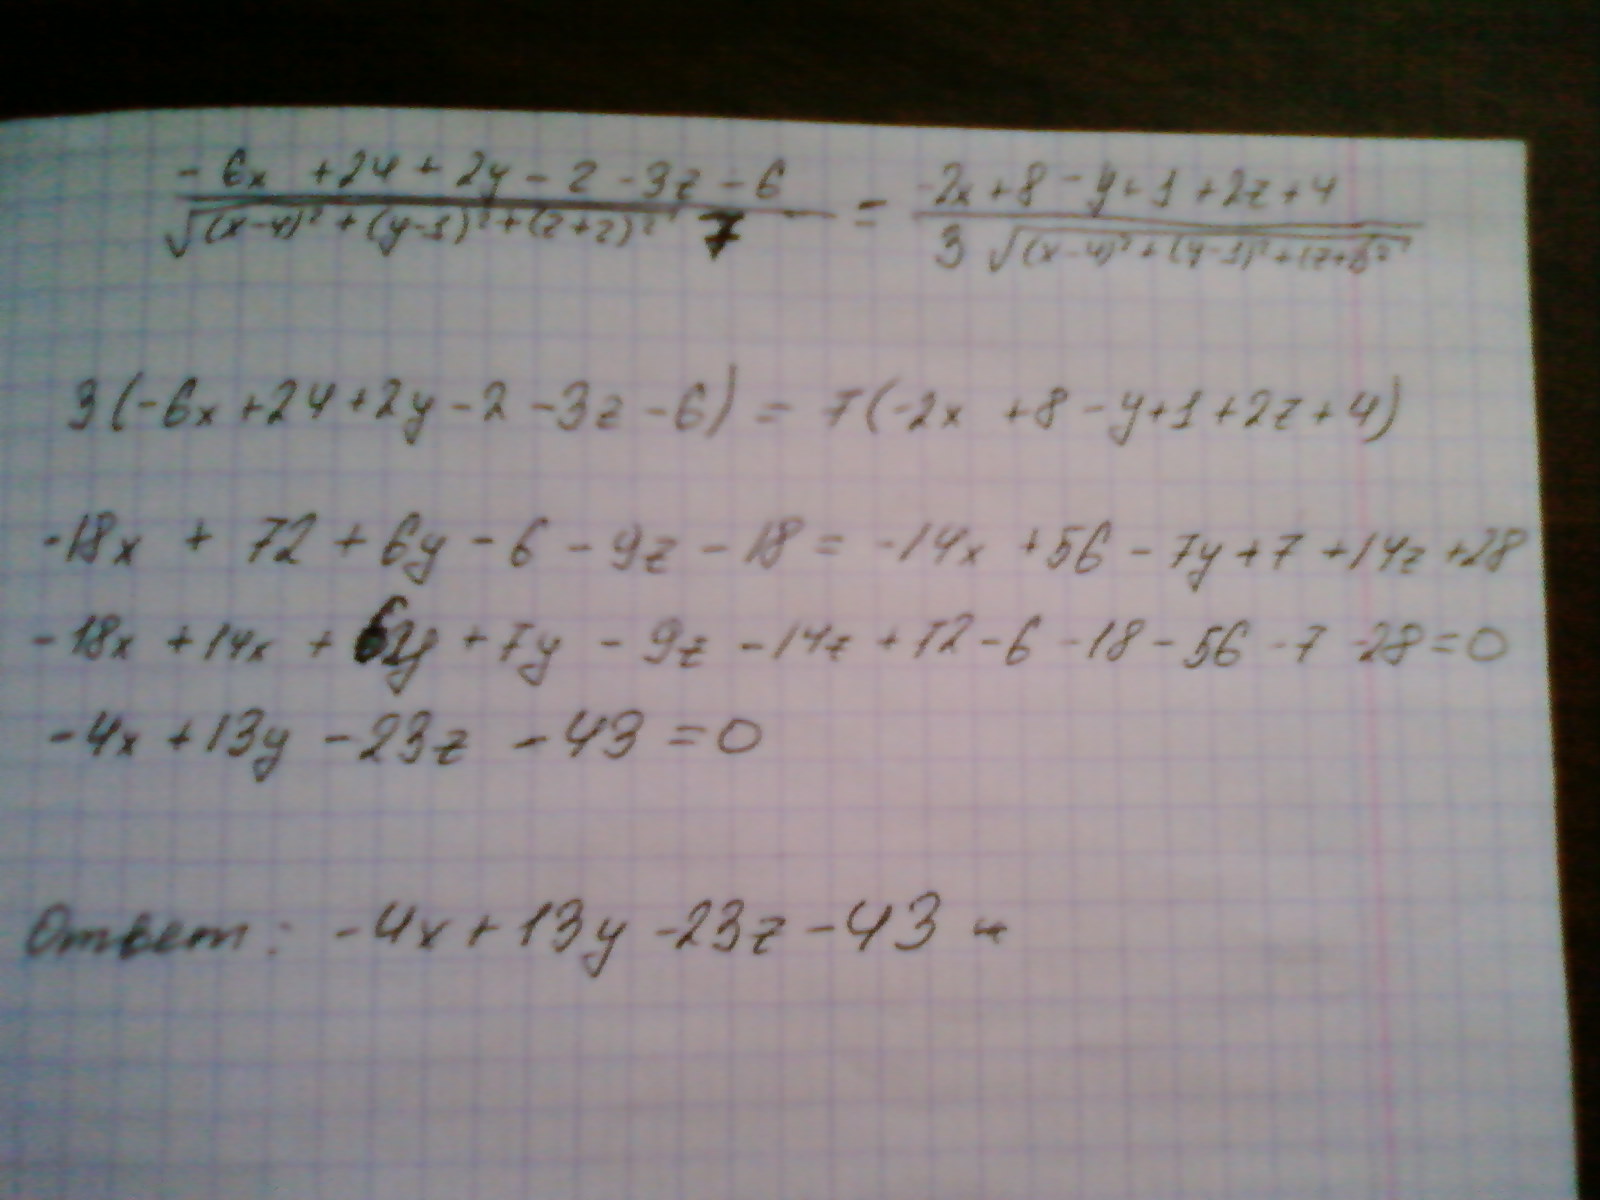 -6x +24 + 2y - 2 - 3z - 6 / √((x-4)² + (y-1)² + (z+2)²) 7 = -2x + 8 - y + 1 + 2z + 4 / 3 √((x-4)² + (y-1)² + (z+2)²)
3(-6x +24 +2y - 2 - 3z - 6) = 7(-2x +8 - y+1 +2z +4)
-18x + 72 + 6y - 6 - 9z - 18 = -14x +56 - 7y +7 +14z +28
-18x +14x + 6y + 7y - 9z - 14z + 72 - 6 - 18 - 56 - 7 - 28 = 0
-4x + 13y - 23z - 43 = 0
Ответ: -4x + 13y - 23z - 43